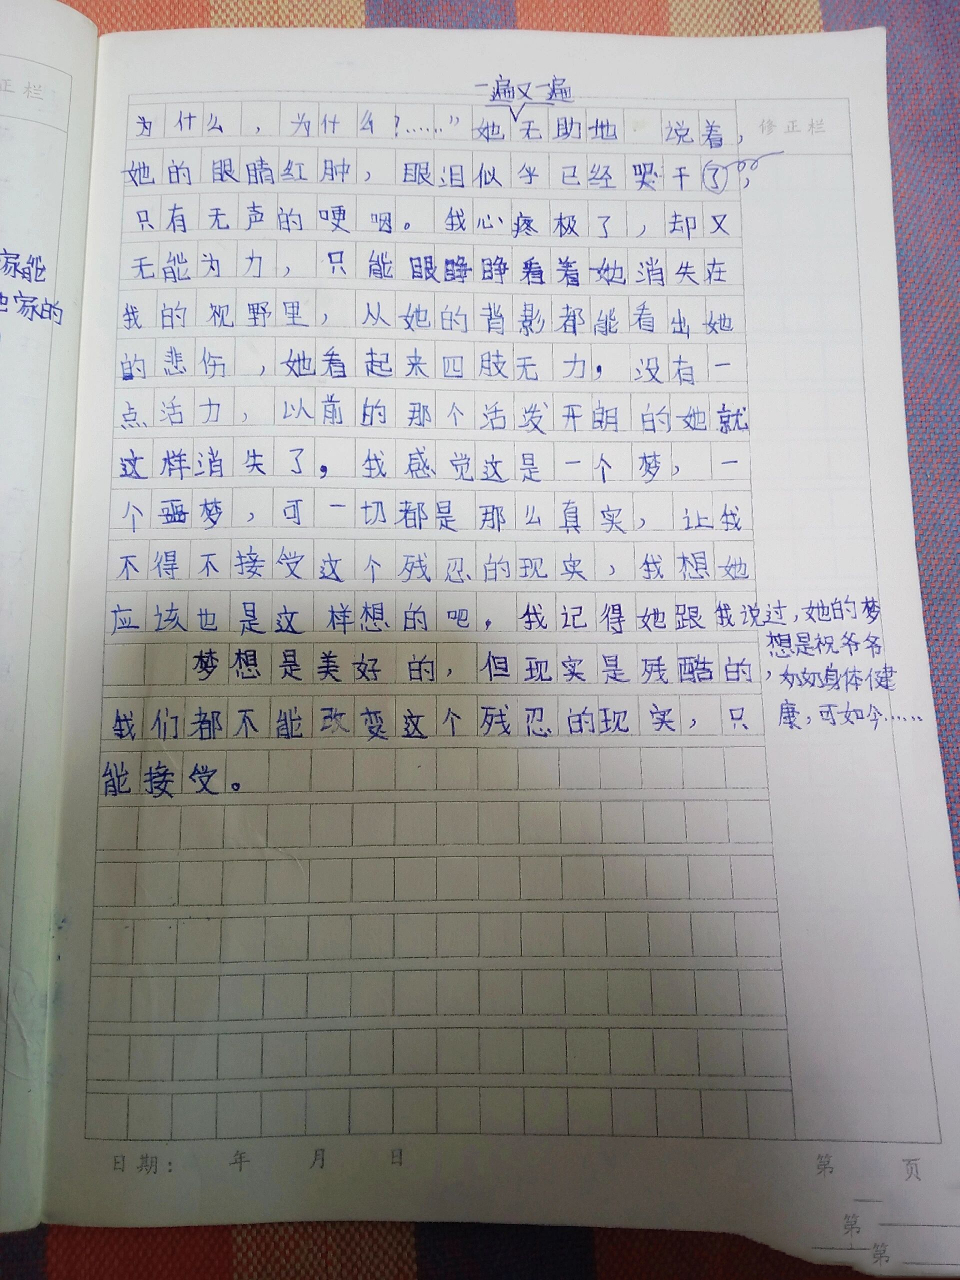 正栏
家能
家的
一遍又一遍
为什么，为什么？……”她无助地 说着，
修正栏
她的眼睛红肿，眼泪似乎已经哭干了，
只有无声的哽咽。我心疼极了，却又
无能为力，只能眼睁睁看着她消失在
我的视野里，从她的背影都能看出她
的悲伤，她看起来四肢无力，没有一
点活力，以前的那个活泼开朗的她就
这样消失了，我感觉这是一个梦，一
个噩梦，可一切都是那么真实，让我
不得不接受这个残忍的现实，我想她
应该也是这样想的吧，我记得她跟我说过，她的梦
想是祝爷爷
奶奶身体健
康，可如今……
梦想是美好的，但现实是残酷的，
我们都不能改变这个残忍的现实，只
能接受。
日期： 年 月 日
第 页
第
第